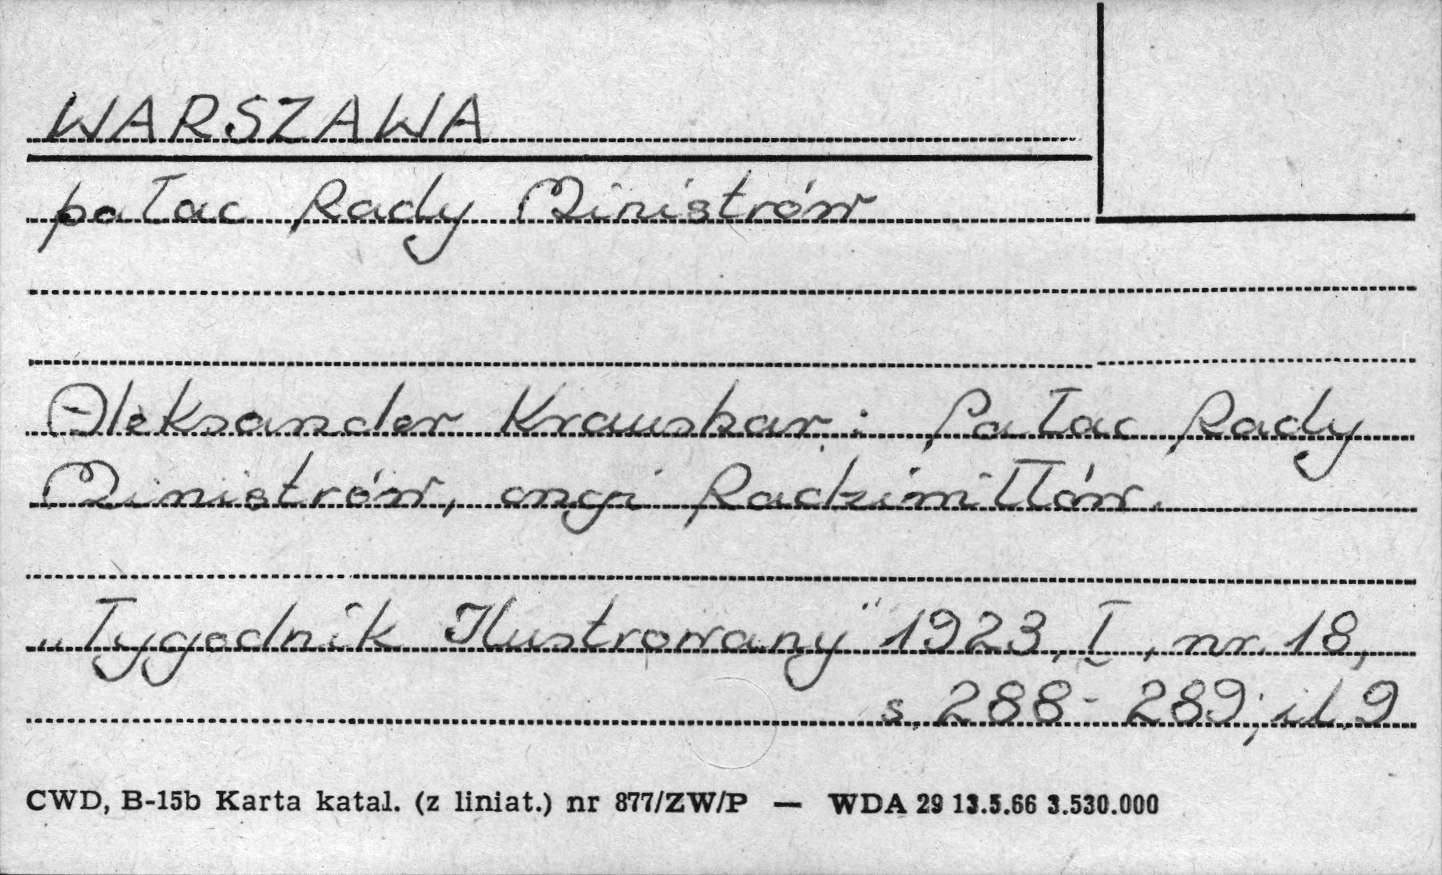 WARSZAWA
pałac Rady Ministrów
Aleksander Kraushar: Pałac Rady
Ministrów, ongi Radziwiłłów.
„Tygodnik Ilustrowany" 1923, I, nr. 18,
s. 288-289; il. 9
CWD, B-15b Karta katal. (z liniat.) nr 877/ZW/P — WDA 29 13.5.66 3.530.000